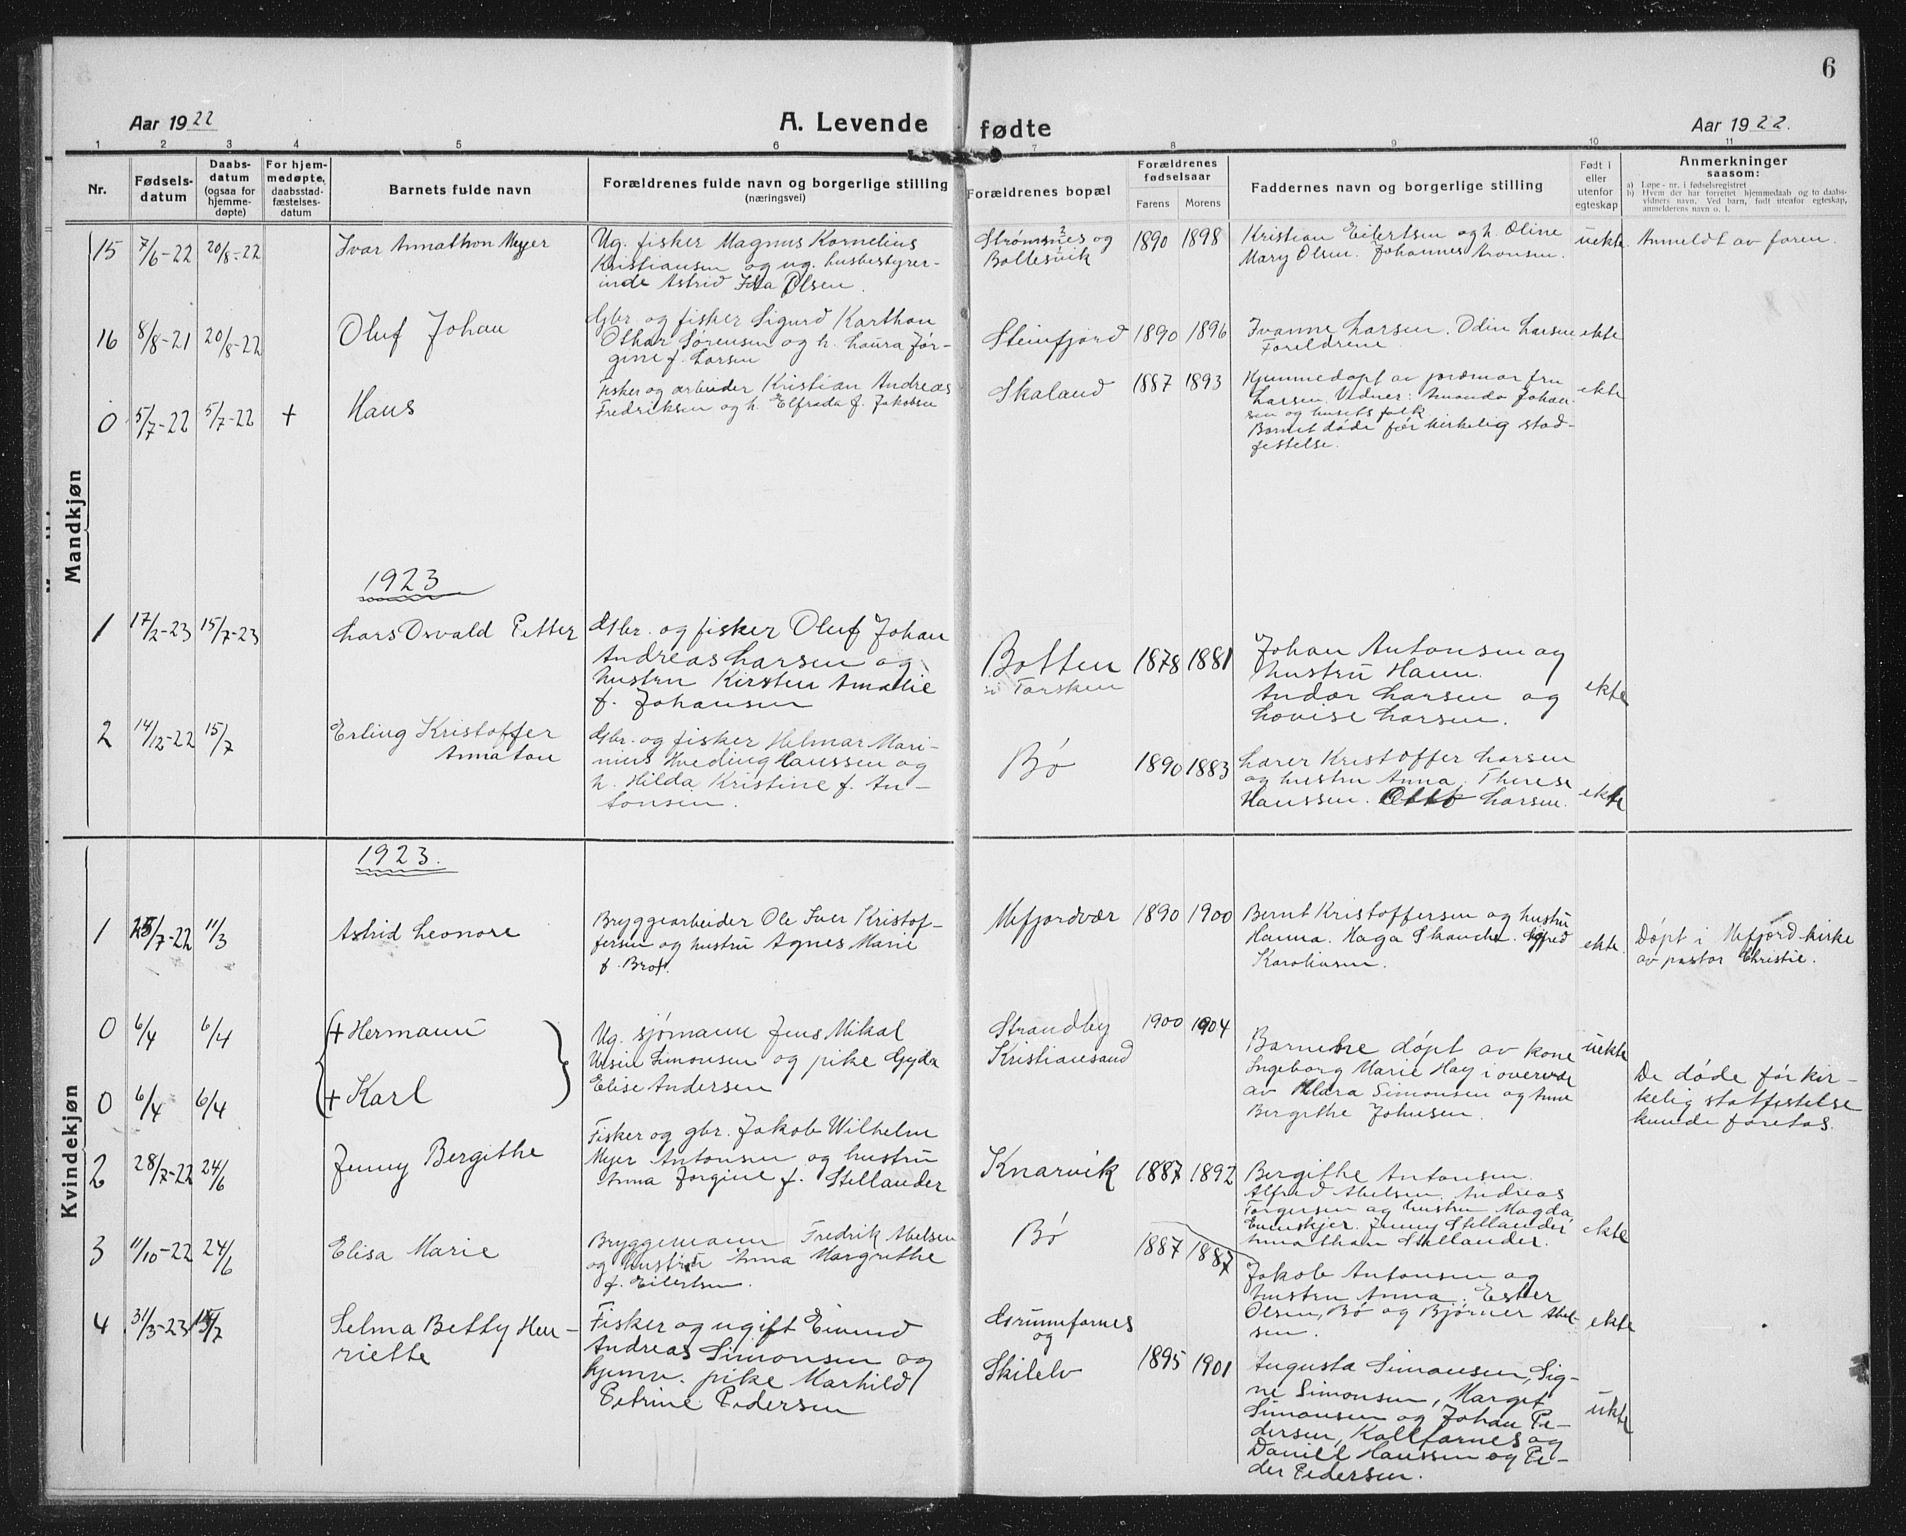 6
Aar 1922
A. Levende
fødte
Aar 1922.
1 2 3 4 5 6 7 8 9 10 11
Nr.
Fødsels-
datum
Daabs-
datum
(ogsaa for
hjemme-
døpte)
For hjem-
medøpte,
daabsstad-
fæstelses-
datum
Barnets fulde navn
Forældrenes fulde navn og borgerlige stilling
(næringsvei)
Forældrenes bopæl
Forældrenes
fødselsaar
Farens Morens
Faddernes navn og borgerlige stilling
Født i
eller
utenfor
egteskap
Anmerkninger
saasom:
a) Løpe-nr. i fødselsregistret
b) Hvem der har forrettet hjemmedaab og to daabs-
vidners navn. Ved barn, født utenfor egteskap,
anmelderens navn o. l.
Mandkjøn
15 7/6-22 20/8-22 Ivar Annathon Meyer
Ug. fisker Magnus Kornelius
Kristiansen og ug. husbestyrer-
inde Astrid Ida Olsen.
Strømsnes og
Ballesvik
1890 1898
Kristian Eilertsen og h. Oline
Mary Olsen. Johannes Aronsen.
uekte Anmeldt av faren.
16 8/8-21 20/8-22 Oluf Johan
Gbr. og fisker Sigurd Karthon
Othar Sørensen og h. Laura Jør-
gine f. Larsen
Steinfjord 1890 1896
Ivanne Larsen. Odin Larsen
Foreldrene.
ekte
0 5/7-22 5/7-22 + Hans
Fisker og arbeider Kristian Andreas
Fredriksen og h. Elfrida f. Jakobsen
Skaland 1887 1893
Hjemmedøpt av jordmor fru
Larsen. Vidner: Amanda Johan-
sen og husets folk
Barnet døde før kirkelig stad-
festelse.
ekte
1923
1 17/2-23 15/7-23 Lars Osvald Petter
Gbr. og fisker Oluf Johan
Andreas Larsen og
hustru Kirsten Amalie
f. Johansen
Botten
i Torsken
1878 1881
Johan Antonsen og
hustru Hanna.
Andor Larsen og
Lovise Larsen.
ekte
2 14/12-22 15/7 Erling Kristoffer
Annaton
Gbr. og fisker Helmar Mari-
nius Hveding Hanssen og
h. Hilda Kristine f. An-
tonsen.
Bø 1890 1883
Lærer Kristoffer Larsen
og hustru Anna. Therese
Hanssen. Larsen.
ekte
Kvindekjøn
1923.
1 25/7-22 11/3 Astrid Leonore
Bryggearbeider Ole Iver Kristof-
fersen og hustru Agnes Marie
f. Brox.
Mefjordvær 1890 1900
Bernt Kristoffersen og hustru
Hanna. Haga Skancke. Sigfred
Karoliusen.
ekte
Døpt i Mefjord kirke
av pastor Christie.
0 6/4 6/4 + Hermann
0 6/4 6/4 + Karl
Ug. sjømann Jens Mikal
Ursin Simonsen og pike Gyda
Elise Andersen
Strandby
Kristiansand
1900 1904
Barnene døpt av kone
Ingeborg Marie Hay i overvær
av Klara Simonsen og Anne
Bergithe Johnsen.
uekte
De døde før kir-
kelig statfestelse
kunde foretas.
2 28/7-22 24/6 Jenny Bergithe
Fisker og gbr. Jakob Wilhelm
Mejer Antonsen og hustru
Anna Jorgine f. Stellander
Knarvik 1887 1892
Bergithe Antonsen.
Alfred Abelsen, Andreas
Torgersen og hustru Magda
Evenskjer. Jenny Stellander
Annathan Stellander.
ekte
3 11/10-22 24/6 Elisa Marie
Bryggemann Fredrik Abelsen
og hustru Anna Margrethe
f. Eilertsen.
Bø 1887 1887
Jakob Antonsen og
hustru Anna. Ester
Olsen, Bø og Bjørner Abel-
sen.
ekte
4 31/3-23 15/7 Selma Betty Hen-
riette
Fisker og ugift Eivind
Andreas Simonsen og
hjemv. pike Marhild
Petrine Pedersen
Grunnfarnes
og
Skilelv
1895 1901
Augusta Simonsen, Sig-
ne Simonsen, Marget
Simonsen og Johan Pe-
dersen, Kalfarnes og
Daniel Hanssen og Pe-
der Pedersen.
uekte